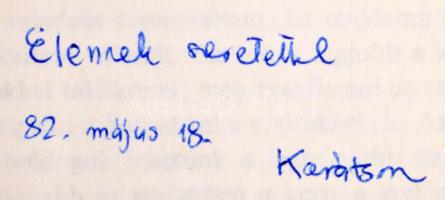 Elennek szeretettel
82. május 18.
Karátson